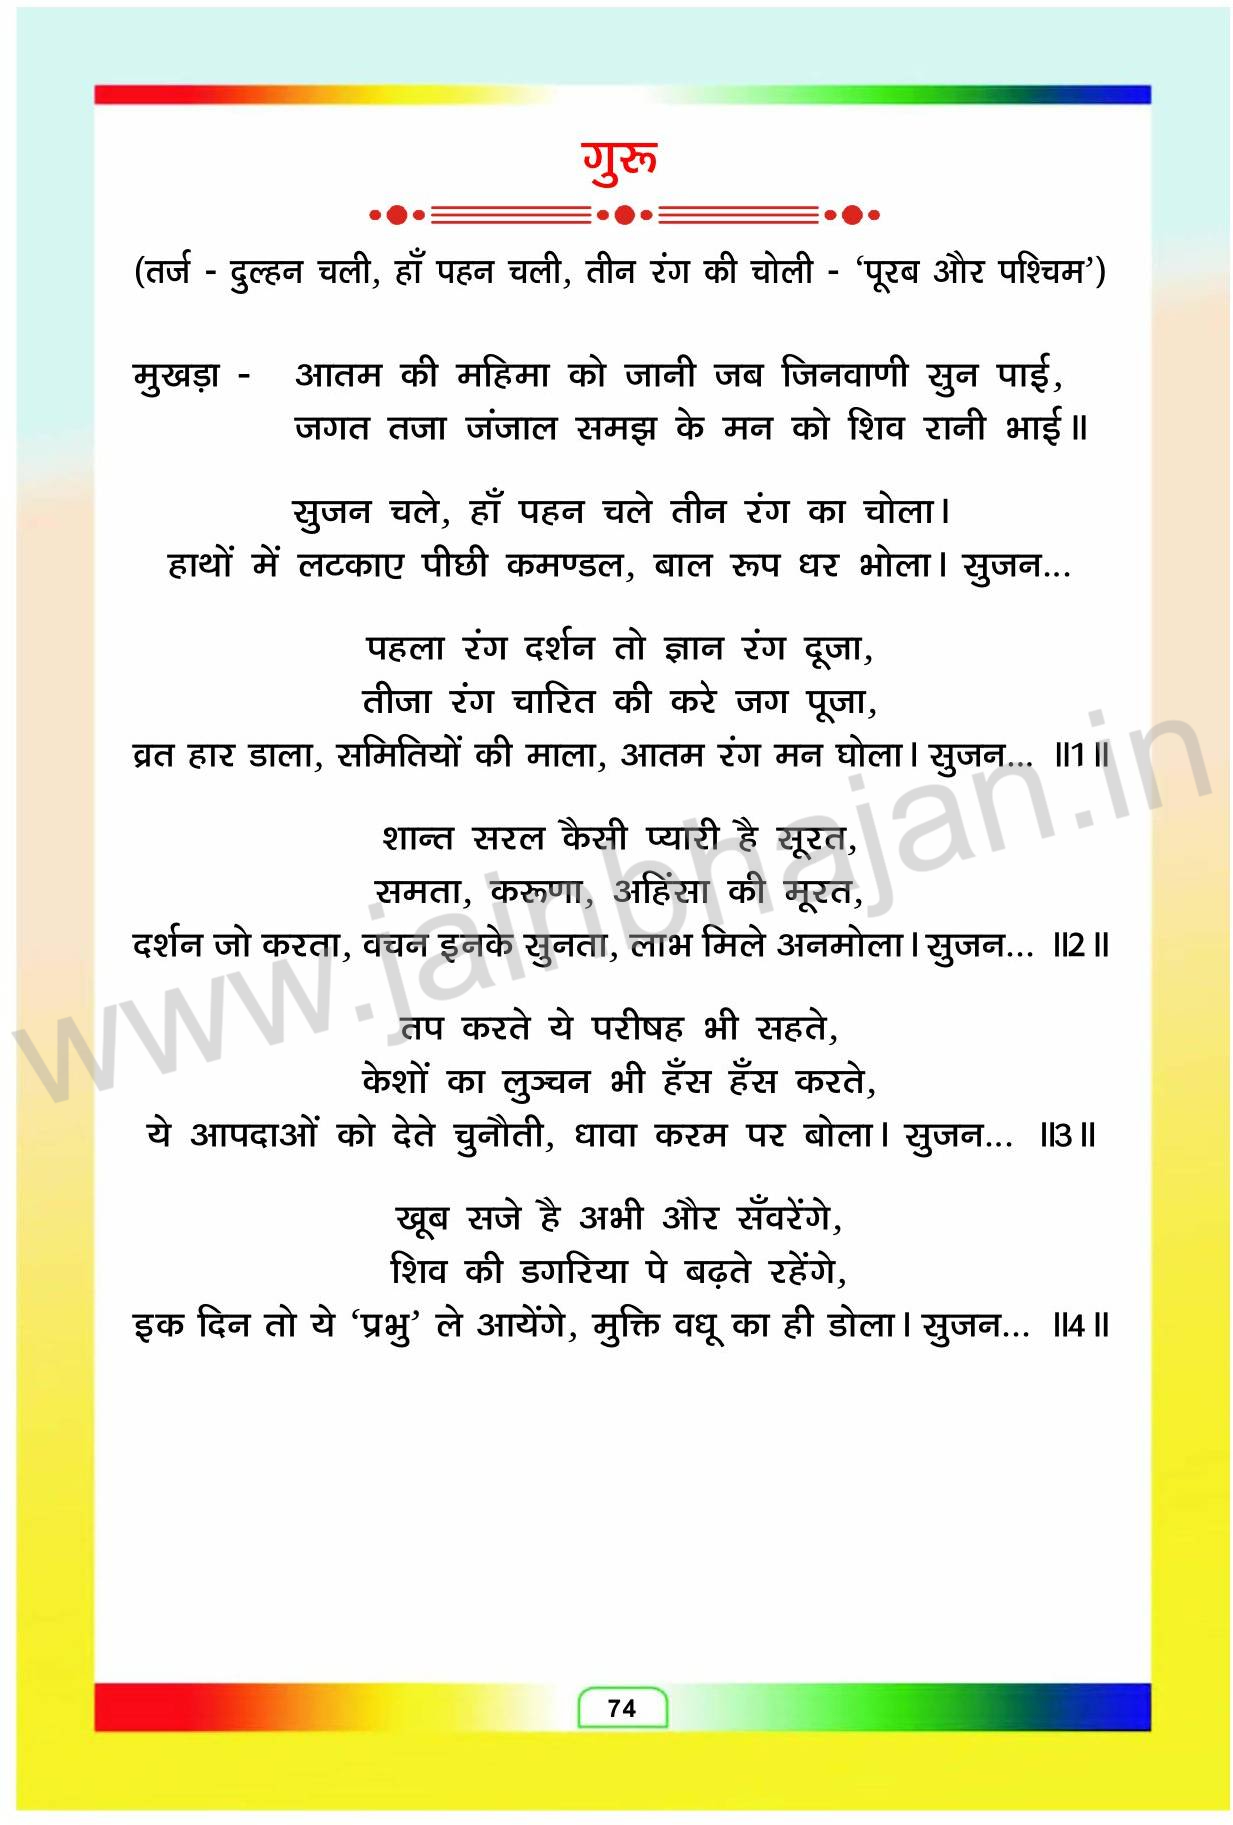 गुरू
(तर्ज - दुल्हन चली, हाँ पहन चली, तीन रंग की चोली - ‘पूरब और पश्चिम’)
मुखड़ा - आतम की महिमा को जानी जब जिनवाणी सुन पाई,
जगत तजा जंजाल समझ के मन को शिव रानी भाई॥
सुजन चले, हाँ पहन चले तीन रंग का चोला।
हाथों में लटकाए पीछी कमण्डल, बाल रूप धर भोला। सुजन...
पहला रंग दर्शन तो ज्ञान रंग दूजा,
तीजा रंग चारित की करे जग पूजा,
व्रत हार डाला, समितियों की माला, आतम रंग मन घोला। सुजन... ॥1॥
शान्त सरल कैसी प्यारी है सूरत,
समता, करूणा, अहिंसा की मूरत,
दर्शन जो करता, वचन इनके सुनता, लाभ मिले अनमोला। सुजन... ॥2॥
तप करते ये परीषह भी सहते,
केशों का लुञ्चन भी हँस हँस करते,
ये आपदाओं को देते चुनौती, धावा करम पर बोला। सुजन... ॥3॥
खूब सजे है अभी और सँवरेंगे,
शिव की डगरिया पे बढ़ते रहेंगे,
इक दिन तो ये ‘प्रभु’ ले आयेंगे, मुक्ति वधू का ही डोला। सुजन... ॥4॥
www.jainbhajan.in
74